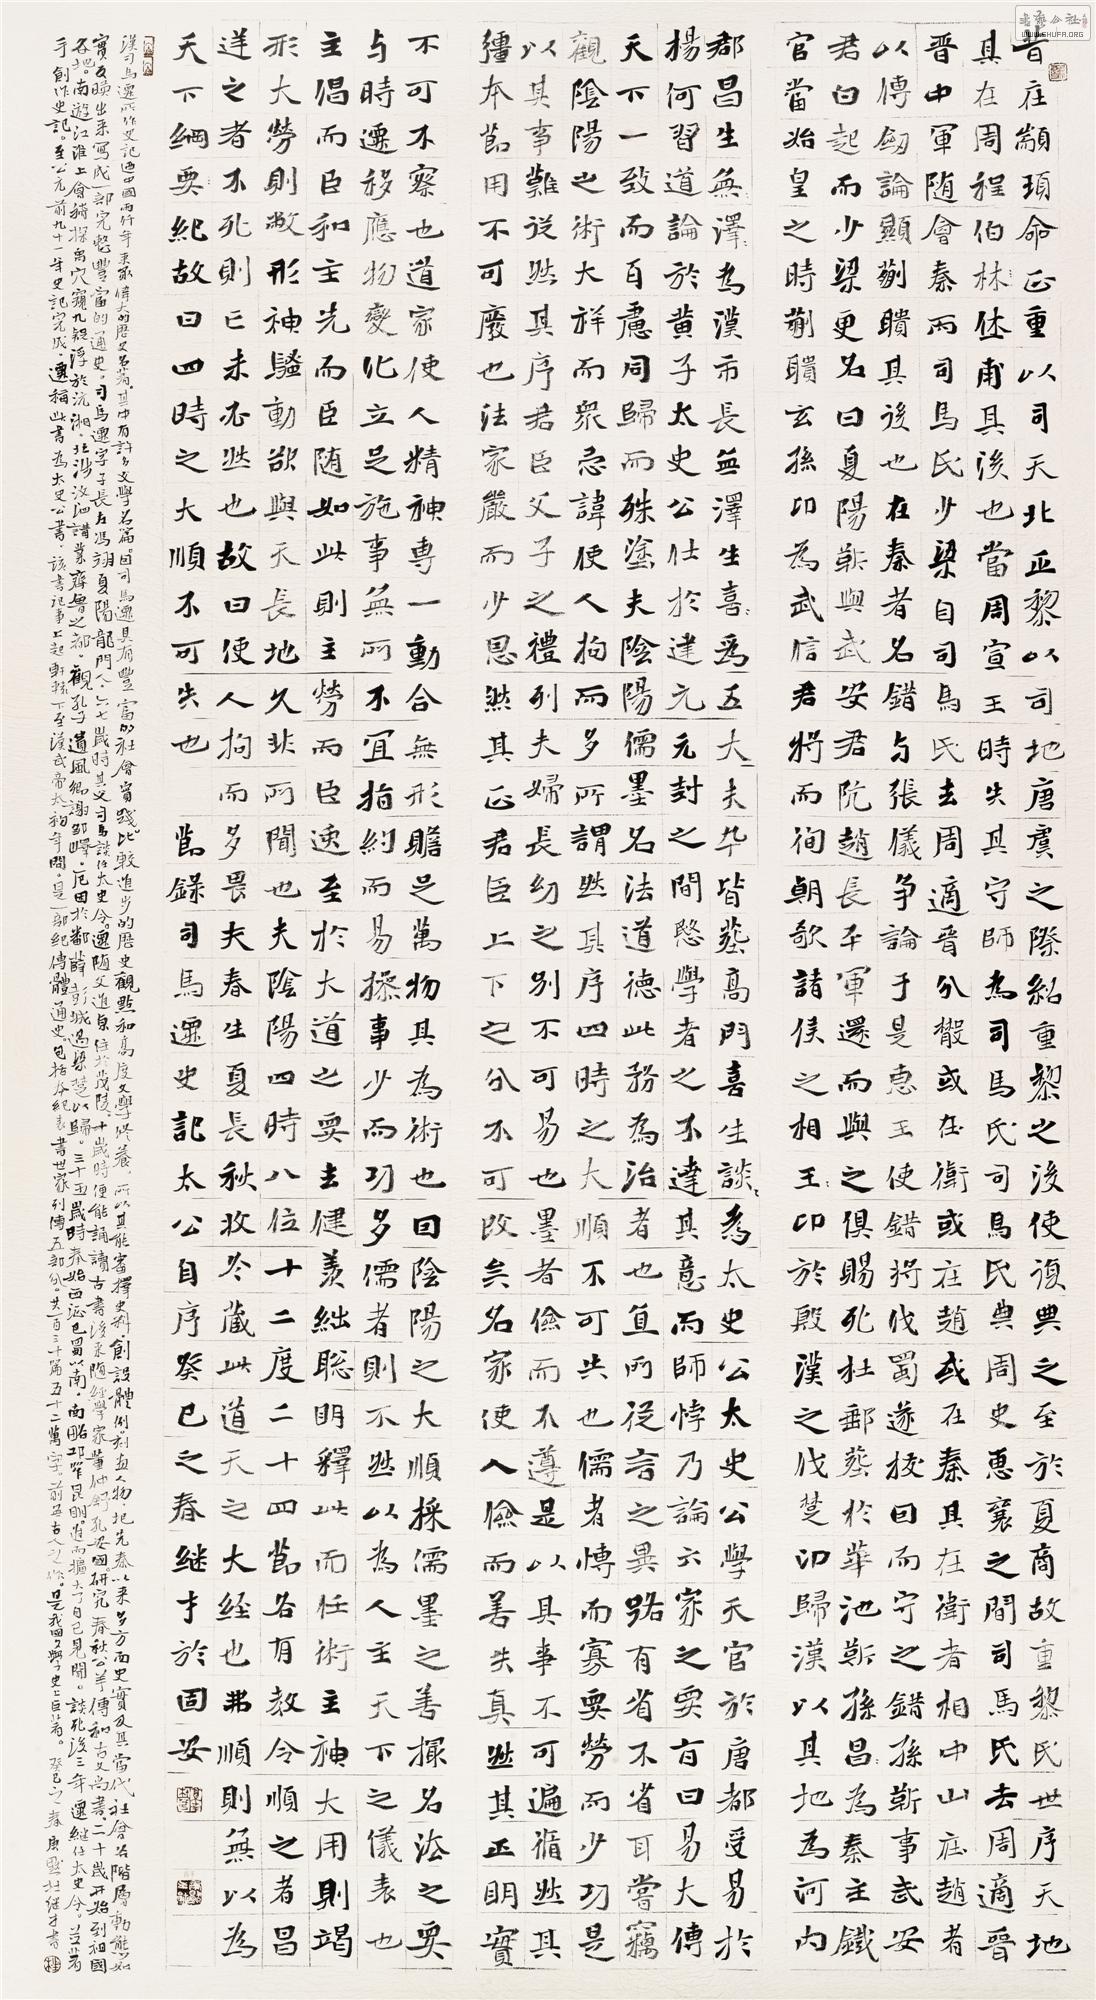 昔在顓頊命正重以司天北正黎以司地唐虞之際紹重黎之後使復典之至於夏商故重黎氏世序天地
其在周程伯林休甫其後也當周宣王時失其守師為司馬氏司馬氏典周史惠襄之間司馬氏去周適晉
晉中軍随會秦而司馬氏少梁自司馬氏去周適晉分散或在衛或在趙或在秦其在衛者相中山在趙者
以傳劒論顯蒯聵其後也在秦者名錯与張儀爭論于是惠王使錯將伐蜀遂拔因而守之錯孫靳事武安
君白起而少梁更名曰夏陽靳與武安君阬趙長平軍還而與之俱賜死杜郵葬於華池靳孫昌〻為秦主鐵
官當始皇之時蒯聵玄孫卬為武信君將而徇朝歌諸侯之相王〻卬於殷漢之伐楚卬歸漢以其地為河内
郡昌生無澤〻為漢市長無澤生喜〻為五大夫卒皆葬高門喜生談〻為太史公太史公學天官於唐都受易於
楊何習道論於黄子太史公仕於建元元封之間愍學者之不達其意而師悖乃論六家之要旨曰易大傳
天下一致而百慮同歸而殊塗夫陰陽儒墨名法道德此務為治者也直所從言之異路有省不省耳嘗竊
觀陰陽之術大祥而衆忌諱使人拘而多所謂然其序四時之大順不可失也儒者博而寡要勞而少功是
以其事難從然其序君臣父子之禮列夫婦長幼之別不可易也墨者儉而不遵是以其事不可遍循然其
彊本節用不可廢也法家嚴而少恩然其正君臣上下之分不可改矣名家使人儉而善失真然其正明實
不可不察也道家使人精神専一動合無形贍足萬物其為術也因陰陽之大順採儒墨之善撮名法之要
与時遷移應物變化立足施事無所不宜指約而易操事少而功多儒者則不然以為人主天下之儀表也
主倡而臣和主先而臣随如此則主勞而臣逸至於大道之要去健羨絀聡明釋此而任術主神大用則竭
形大勞則敝形神騷動欲與天長地久非所聞也夫陰陽四時八位十二度二十四節各有教令順之者昌
逆之者不死則亡未必然也故曰使人拘而多畏夫春生夏長秋收冬藏此道天之大經也弗順則無以為
天下綱要紀故曰四時之大順不可失也 節錄司馬遷史記太公自序癸巳之春继才於固安
漢司馬遷所作史記迺中國兩仟年来最偉大的歷史名著其中有許多文學名篇因司馬遷具有豐富的社會實踐比較進步的歷史觀點和高度文學修養所以其能審擇史料創設體例刻畫人物把先秦以来多方面史實及其當代社會各階層動態如
實反映出来寫成一部完整豐富的通史司馬遷字子長左馮翊夏陽龍門人六七歲時其父司馬談任太史令遷随父進京住於茂陵十歲時便能誦讀古書後来随經學家董仲舒孔安國研究春秋公羊傳和古文尚書二十歲开始到祖國
各地南遊江淮上會稽探禹穴窺九疑浮於沅湘北涉汶泗講業齊魯之都觀孔子遺風鄉謝鄒嶧厄困於鄱薛彭城過梁楚以歸三十五歲時奉始西征巴蜀以南南略邛笮昆明進而擴大了自己見聞談死後三年遷继任太史令並着
手創作史記至公元前九十一年史記完成遷稱此書為太史公書該書記事上起軒轅下至漢武帝太初年間是一部紀傳體通史包括本紀表書世家列傳五部分共一百三十篇五十二萬字前無古人之作是我國文學史上巨著癸巳之春庚熙杜继才書
WWW.SHUFA.ORG